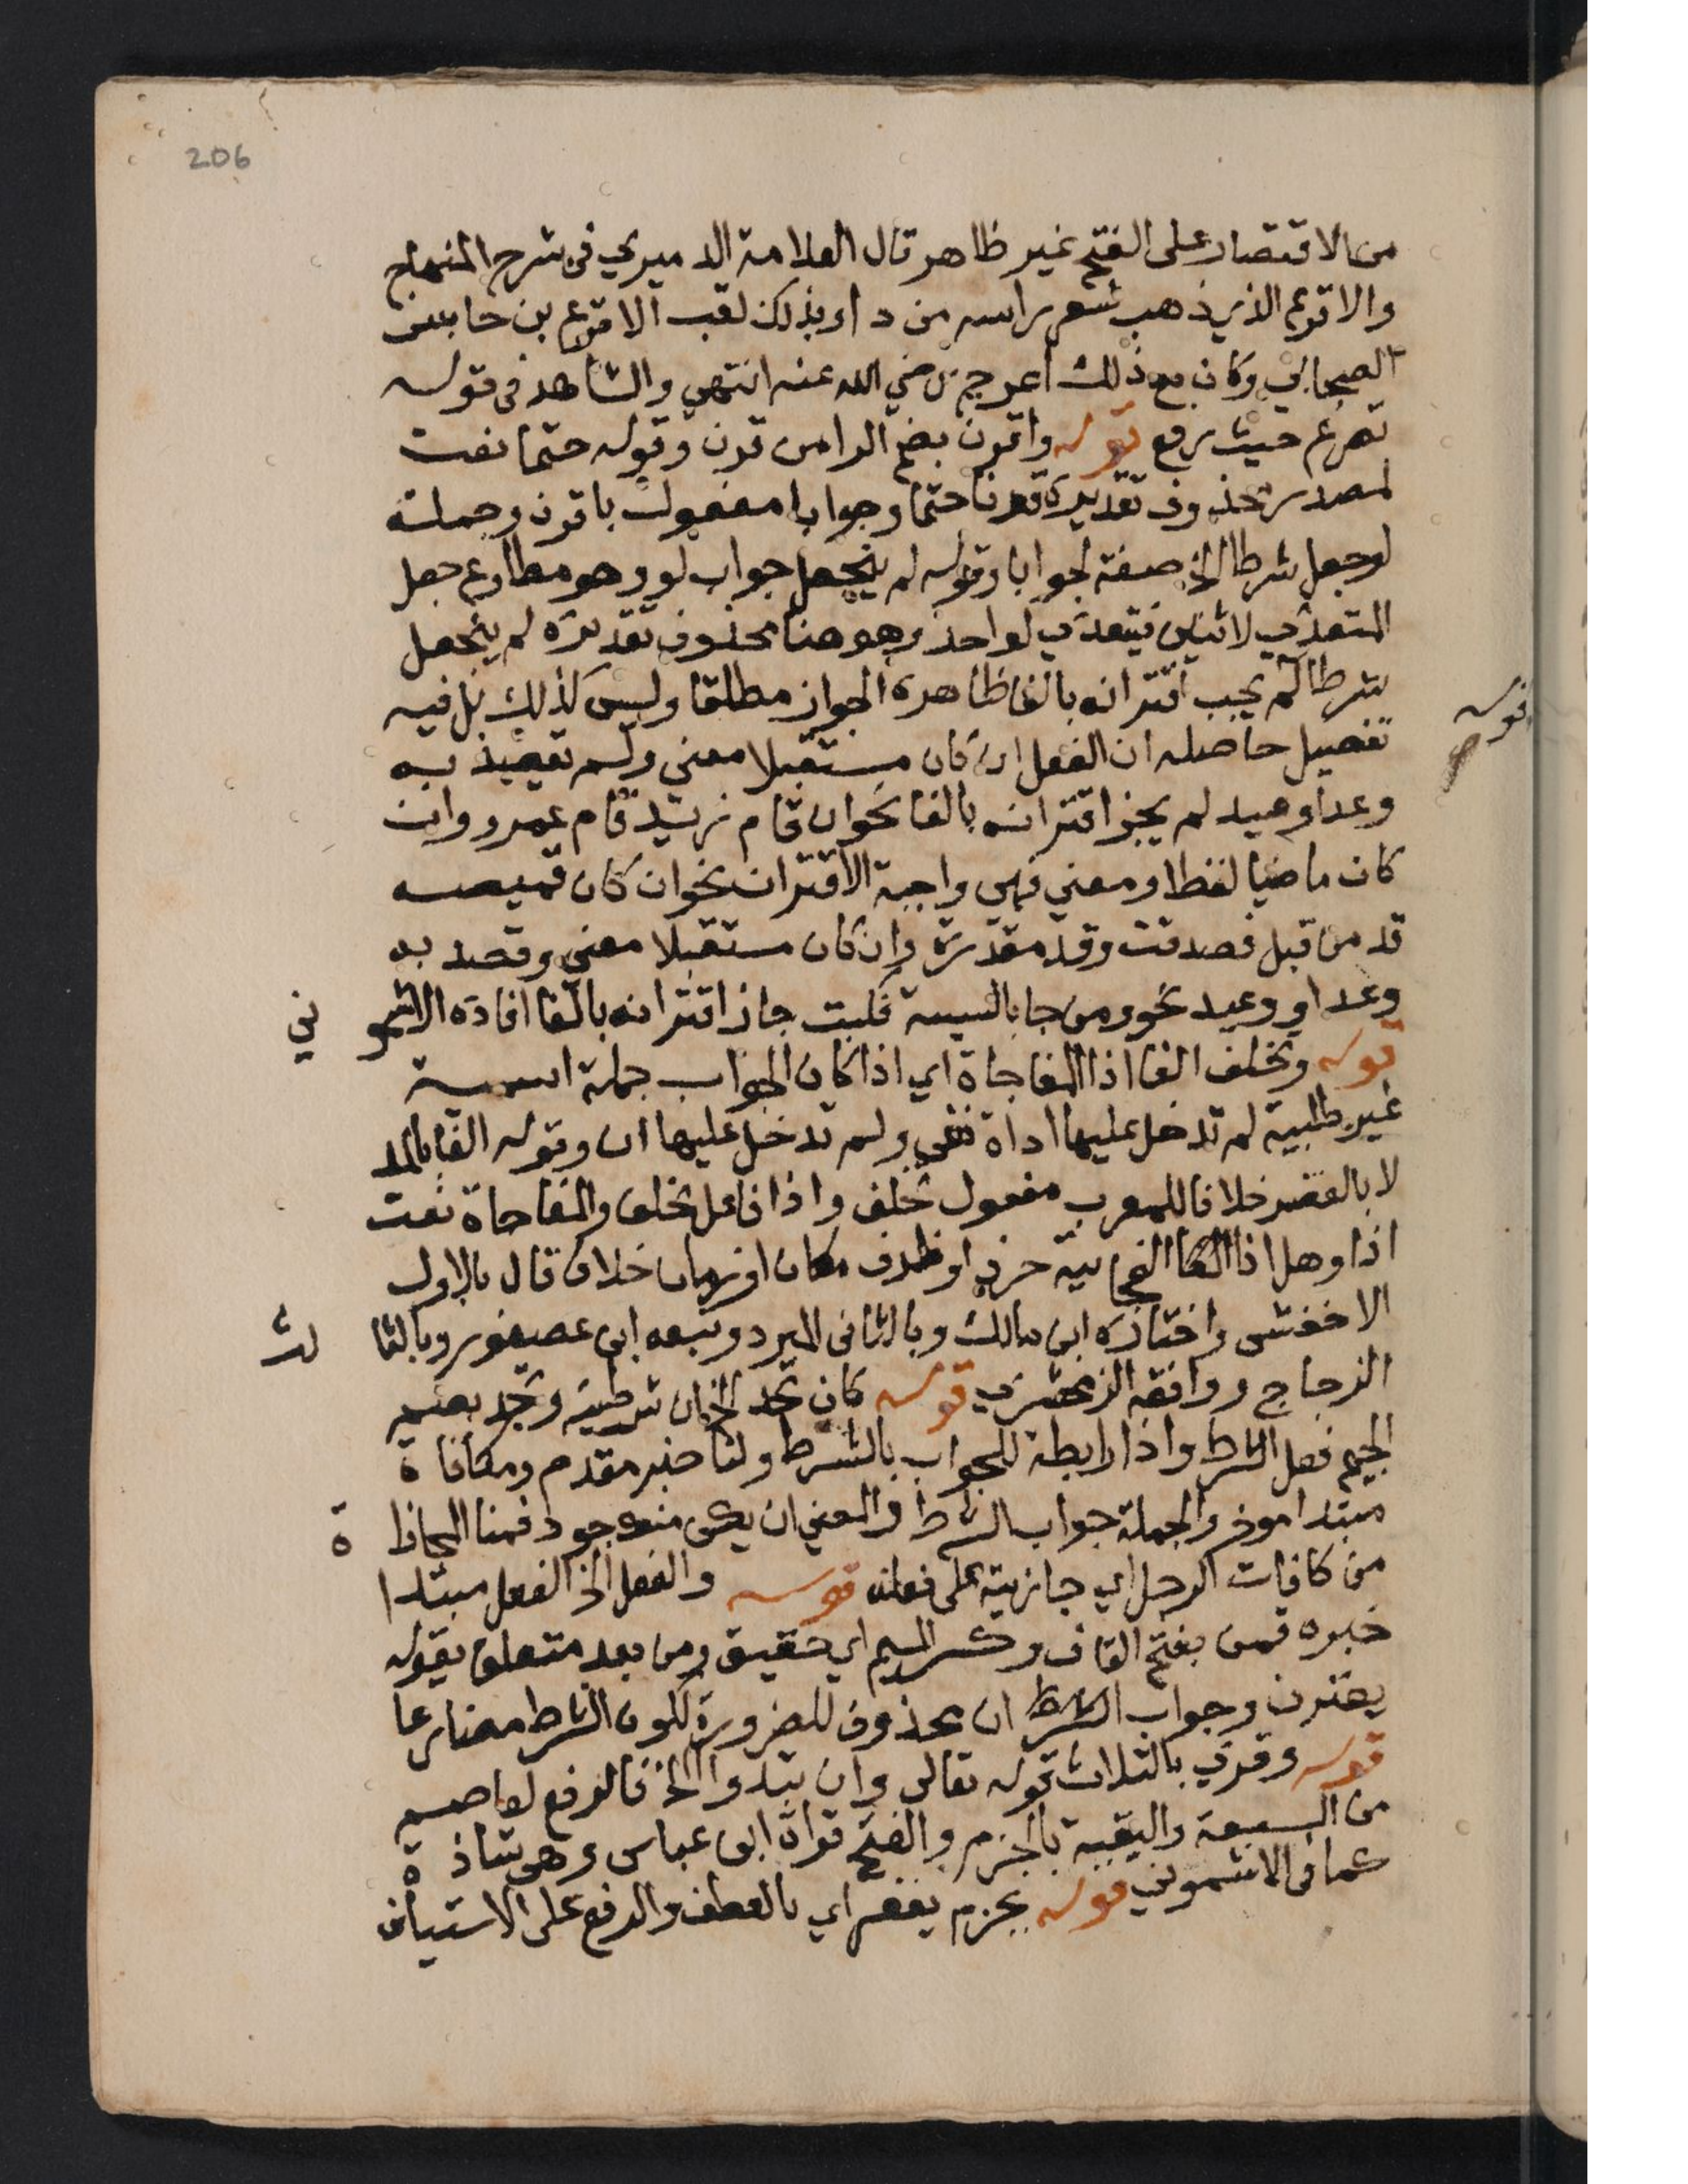 206
من الاقتصار على الفتح غير ظاهر قال العلامة الدميري في شرح المنهاج
والاقرع الذي ذهب شعر راسه من داء وبذلك لقب الاقرع بن حابس
الصحابي وكان مع ذلك اعرج رضي الله عنه انتهى والشاهد في قوله
تصرع حيث رفع قوله واقرن بضم الرا من قرن وقوله حتما نعت
لمصدر محذوف تقديره قرنا حتما وجوابا مفعول باقرن وجملة
لو جعل شرطا الخ صفة لجوابا وقوله لم ينجعل جواب لو وهو مطاوع جعل
المتعدي لاثنين فيتعدي لواحد وهو هنا محذوف تقديره لم ينجعل
شرطا لم يجب اقترانه بالفا ظاهره الجواز مطلقا وليس كذلك بل فيه
قوله
تفصيل حاصله ان الفعل ان كان مستقبلا معني ولم تقصد به
وعدا وعيد لم يجز اقترانه بالفا نحو ان قام زيد قام عمرو وان
كان ماضيا لفظا ومعني فهي واجبة الاقتران نحو ان كان قميصه
قد من قبل فصدقت وقد مقدرة وان كان مستقبلا معني وقصد به
وعدا او وعيد نحو ومن جا بالسيية فكبت جاز اقترانه بالفا افاده الاشمو ني
قوله وتخلف الفا اذا المفاجاة اي اذا كان الجواب جملة اسمية
غير طلبية لم تدخل عليها اداة نفي ولم تدخل عليها ان وقوله الفا بالمد
لا بالقصر خلافا للمعرب مفعول تخلف واذا فاعل تخلف والمفاجاة نعت
اذا وهل اذا الفجايية حرف او ظرف مكان او زمان خلاف قال بالاول
الاخفش واختاره ابن مالك وبالثاني المبرد وتبعه ابن عصفور وبالثا لث
الزجاج ووافقه الزمخشري قوله كان تجد الخ ان شرطية وتجد بضم
الجيم فعل الشرط واذا رابطة للجواب بالشرط ولنا خبر مقدم ومكافاة
مبتدا موخر والجملة جواب الشرط والمعني ان يكن منك جود فمنا المجافا ة
من كافات الرجل اي جازيته على فعله قوله والفعل الخ الفعل مبتدا
خبره قمن بفتح القاف وكسر الميم اي حقيق ومن بعد متعلق بقوله
يقترن وجواب الشرط ان محذوف للضرورة لكون الشرط مضارعا
قوله وقري بالثلاث قوله تعالى وان تبدوا الخ فالرفع لعاصم
من السبعة والبقية بالجزم والفتح قراة ابن عباس وهي شاذة
كما في الاشموني قوله بجزم يغفر اي بالعطف والرفع على الاستيناف